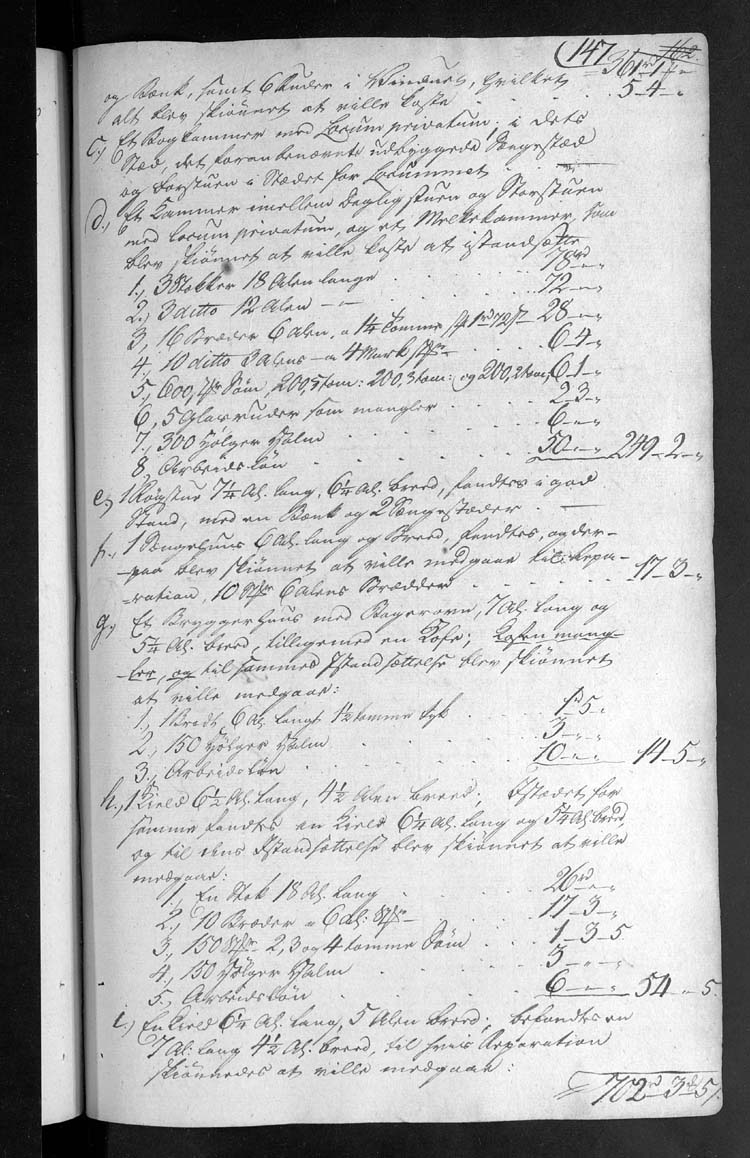 147 162.
361rd 1 " "
og Bænk, samt 6 Ruder i Vinduet, hvilket
alt blev skiønnet at ville koste . . . 5 - 4 - "
c.) Et Bogkammer med Locum privatum; i dets
Stæd, det foranbenævnte udbyggede Sengestæd
og Forstuen i Stædet for Locummet . —
d.) Et Kammer imellem Dagligstuen og Storstuen
med Locum privatum, og et Melkekammer, som
blev skiønnet at ville koste at istandsætte
1.) 3 Stokker 18 Alen lange . . . 78rd - " "
2.) 3 ditto 12 Alen — " — . . . 72 - " - "
3, 16 Bræder 6 Alen, a 1¼ Tomme 1rd 72 s 28 - " - "
4, 10 ditto 3 Alens — a 4 Mark . . 6 - 4 - "
5, 600, Søm, 200, 5 tom: 200, 3 tom: og 200, 2 tom, 6 - 1 - "
6, 5 Glasruder som mangler . . . 2 - 3 - "
7, 300 Kølger Halm . . . 6 - " - "
8, Arbeidsløn . . . 50 - " - " 249 - 2 - "
e.) 1 Røgstue 7¼ Al. lang, 6¼ Al. breed, fandtes i god
Stand, med en Bænk og 2 Sengestæder . —
f., 1 Sengehuus 6 Al. lang og breed, fandtes, og der-
paa blev skiønnet at ville medgaae til Repa-
ration, 10 6 Alens Brædder . . . 17 - 3 - "
g.) Et Bryggerhuus med Bagerovn, 7 Al. lang og
5¼ Al. breed, tilligemed en Kove; Koven mang-
ler, og til sammes Istandsættelse blev skiønnet
at ville medgaae:
1, 1 Bredt 6 Al. langt 1½ tomme tyk . 1rd 5 "
2., 150 Kølger Halm . . . 3 - " - "
3., Arbeidsløn . . . 10 - " - " 14 - 5 - "
h., 1 Kield 6½ Al. lang, 4½ Alen breed; Istædet for
samme fandtes en Kield 6¼ Al. lang og 5¼ Al. breed,
og til dens Istandsættelse blev skiønnet at ville
medgaae:
1, En Stok 18 Al. lang . . . 26rd - " - "
2., 10 Bræder a 6 Al: . . . 17 - 3 - "
3, 150 2, 3 og 4 tomme Søm . . 1 - 3 - 5
4, 150 Kølger Halm . . . 3 - " - "
5, Arbeidsløn . . . 6 - " - " 54 - " 5.
i.) En Kield 6¼ Al. lang, 5 Alen breed; befandtes en
7 Al: lang 4½ Al. breed, til hvis Reparation
skiønnedes at ville medgaae:
702rd 3 - 5 s.